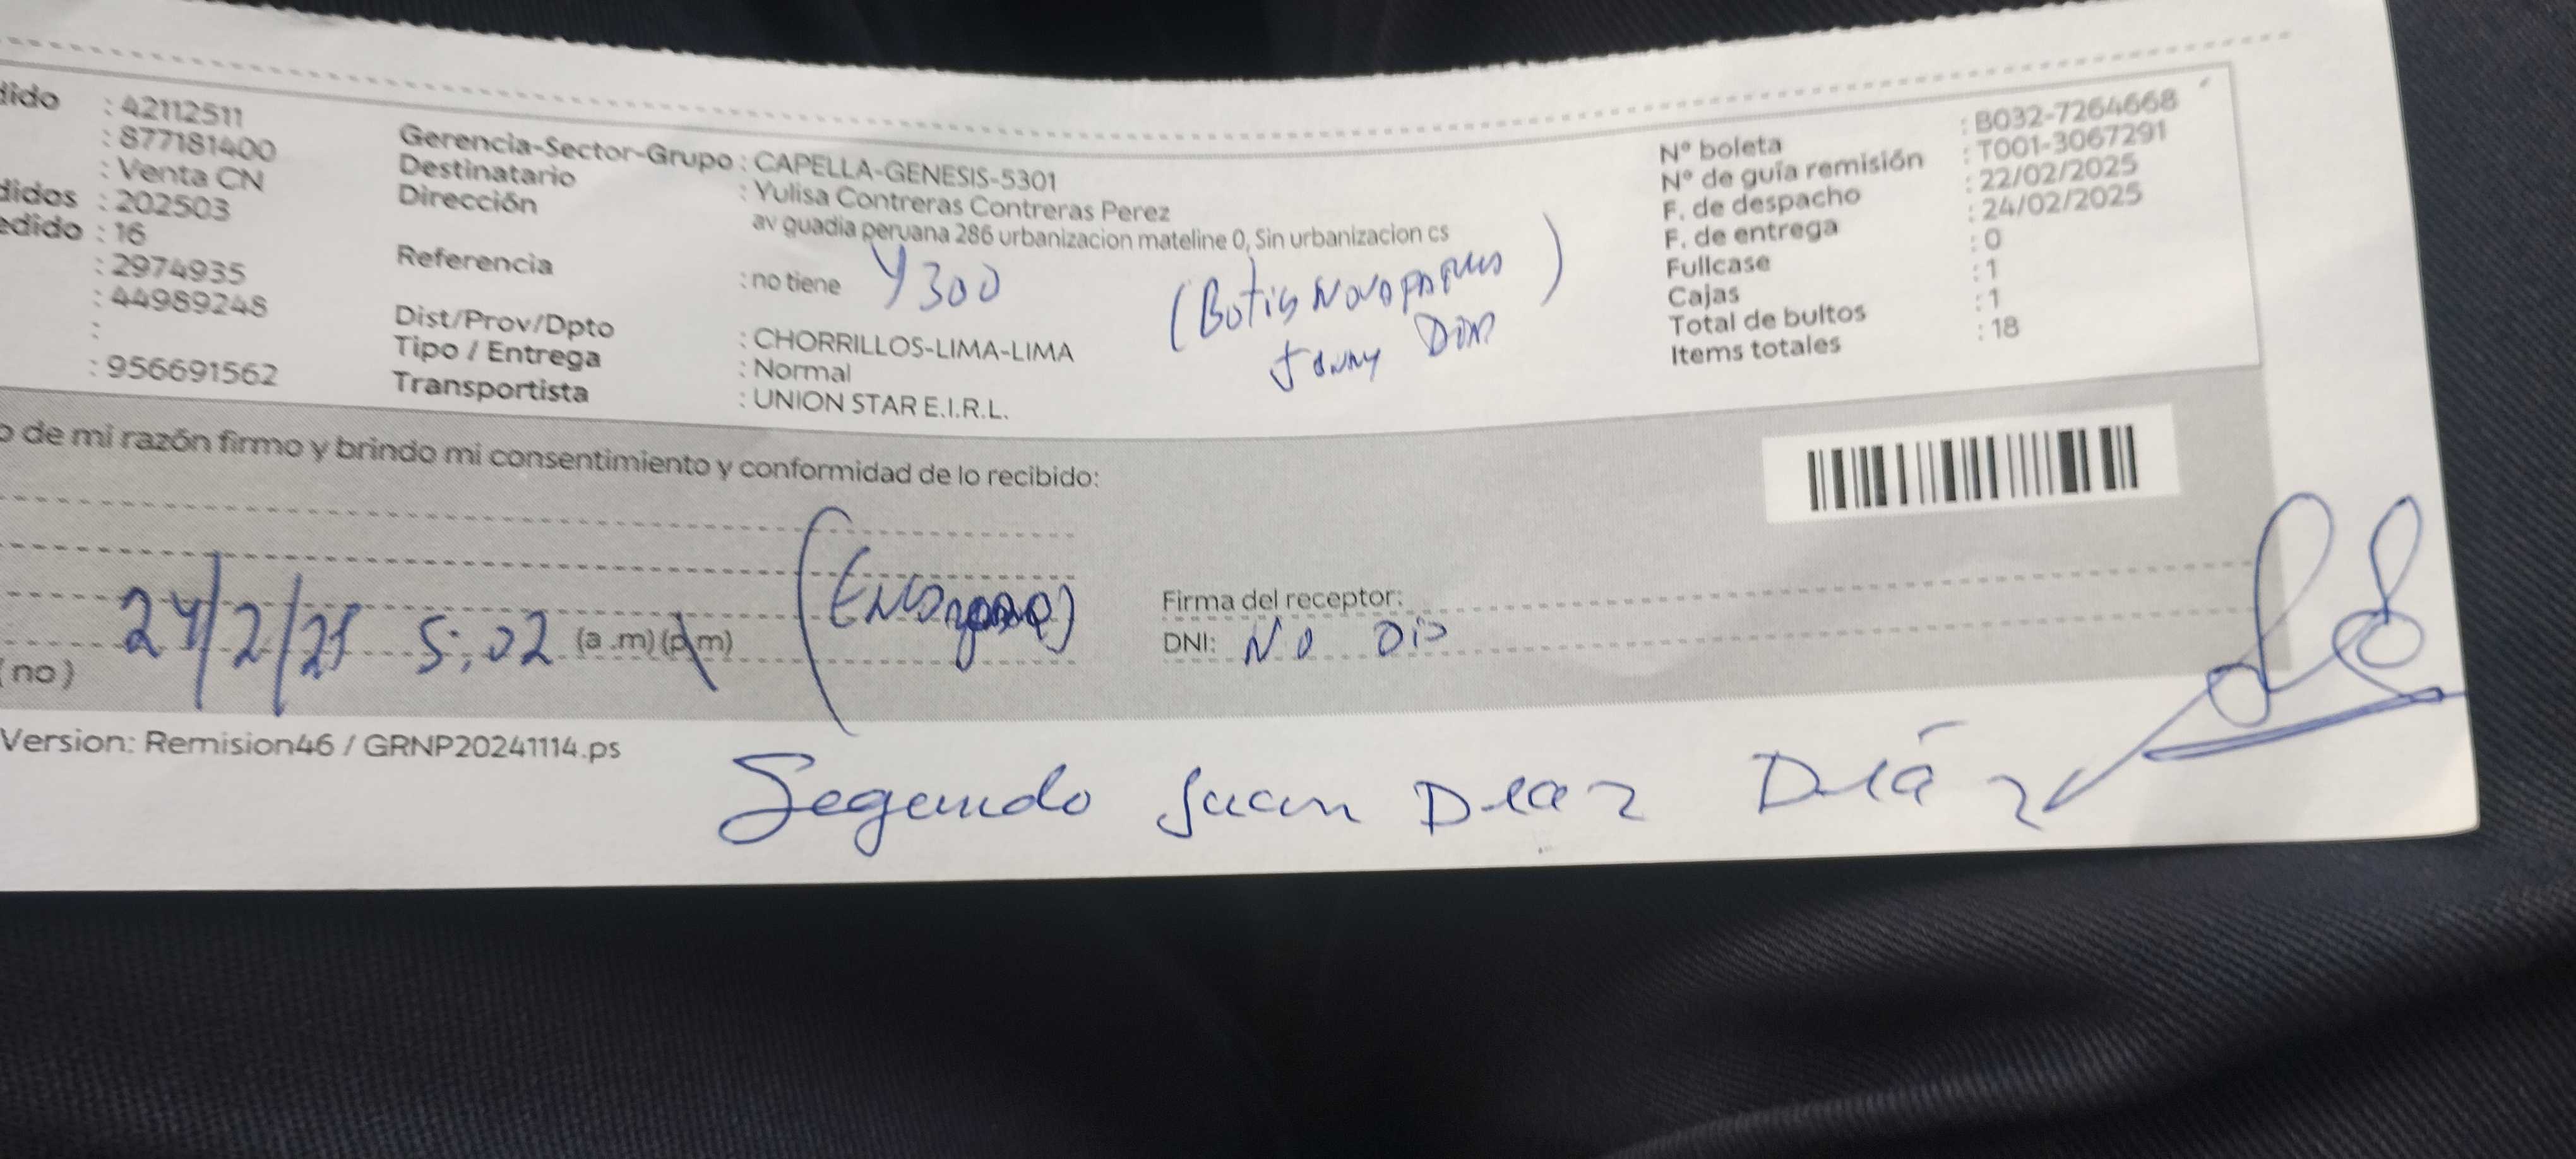 dido : 42112511
: 877181400
: Venta CN
didos : 202503
edido : 16
: 2974935
: 44989248
:
: 956691562
Gerencia-Sector-Grupo : CAPELLA-GENESIS-5301
Destinatario : Yulisa Contreras Contreras Perez
Dirección av guadia peruana 286 urbanizacion mateline 0, Sin urbanizacion cs
Referencia : no tiene
Y 300
(Botica
Dist/Prov/Dpto : CHORRILLOS-LIMA-LIMA
Tipo / Entrega : Normal
Transportista : UNION STAR E.I.R.L.
N° boleta : B032-7264668
N° de guía remisión : T001-3067291
F. de despacho : 22/02/2025
F. de entrega : 24/02/2025
Fullcase : 0
Cajas : 1
Total de bultos : 1
Items totales : 18
o de mi razón firmo y brindo mi consentimiento y conformidad de lo recibido:
24/2/25 5:02 (a .m) (p.m)
(no)
Firma del receptor:
DNI: No Dio
Version: Remision46 / GRNP20241114.ps
Segundo Juan Diaz Díaz